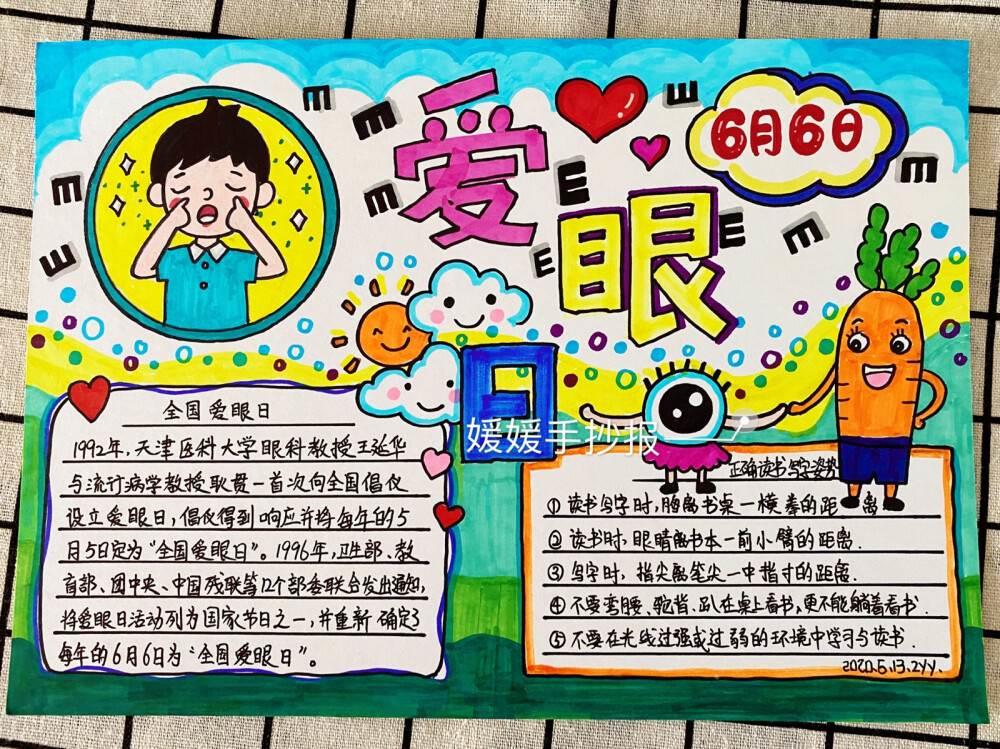 爱
眼
日
6月6日
E
E
E
E
E
E
E
E
E
E
E
媛媛手抄报
全国爱眼日
1992年,天津医科大学眼科教授王延华
与流行病学教授耿贯一首次向全国倡仪
设立爱眼日,倡仪得到响应并将每年的5
月5日定为“全国爱眼日”。1996年,卫生部、教
育部、团中央、中国残联等12个部委联合发出通知,
将爱眼日活动列为国家节日之一,并重新确定了
每年的6月6日为“全国爱眼日”。
正确读书写字姿势
①读书写字时,胸离书桌一横拳的距离
②读书时,眼睛离书本一前小臂的距离.
③写字时,指尖离笔尖一中指寸的距离.
④不要弯腰、驼背、趴在桌上看书,更不能躺着看书.
⑤不要在光线过强或过弱的环境中学习与读书.
2020.5.13.ZYY.